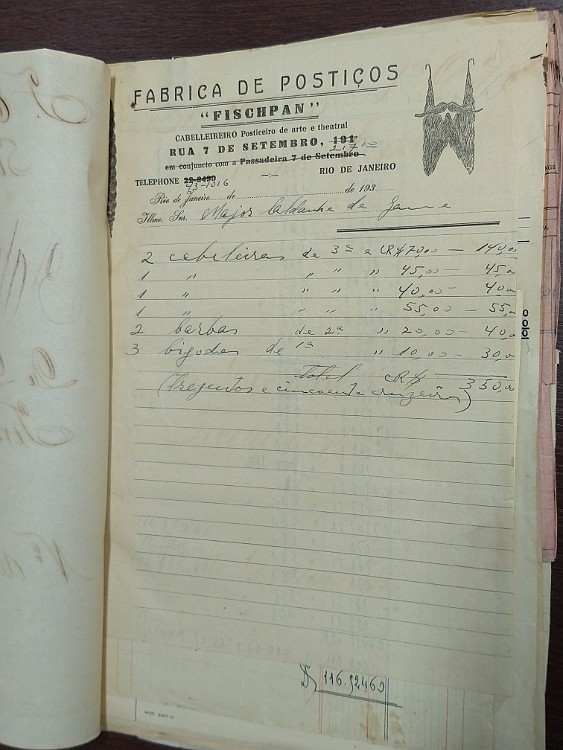 FABRICA DE POSTIÇOS
"FISCHPAN"
CABELLEIREIRO Posticeiro de arte e theatral
RUA 7 DE SETEMBRO, 191
em conjuncto com a Passadeira 7 de Setembro
RIO DE JANEIRO
TELEPHONE 22-9490
43-1016
Rio de Janeiro, de de 193
Illmo. Snr. Major Saldanha da Gama
2 cabeleiras de 3ª a CR$ 70,00 — 140,00
1 " " " " 45,00 — 45,0
1 " " " " 40,00 — 40,0
1 " " " " 55,00 — 55,0
2 barbas de 2ª " 20,00 — 40,0
3 bigodes de 1ª " 10,00 — 30,0
total CR$ 350,00
(trezentos e cincoenta cruzeiros)
116.92460